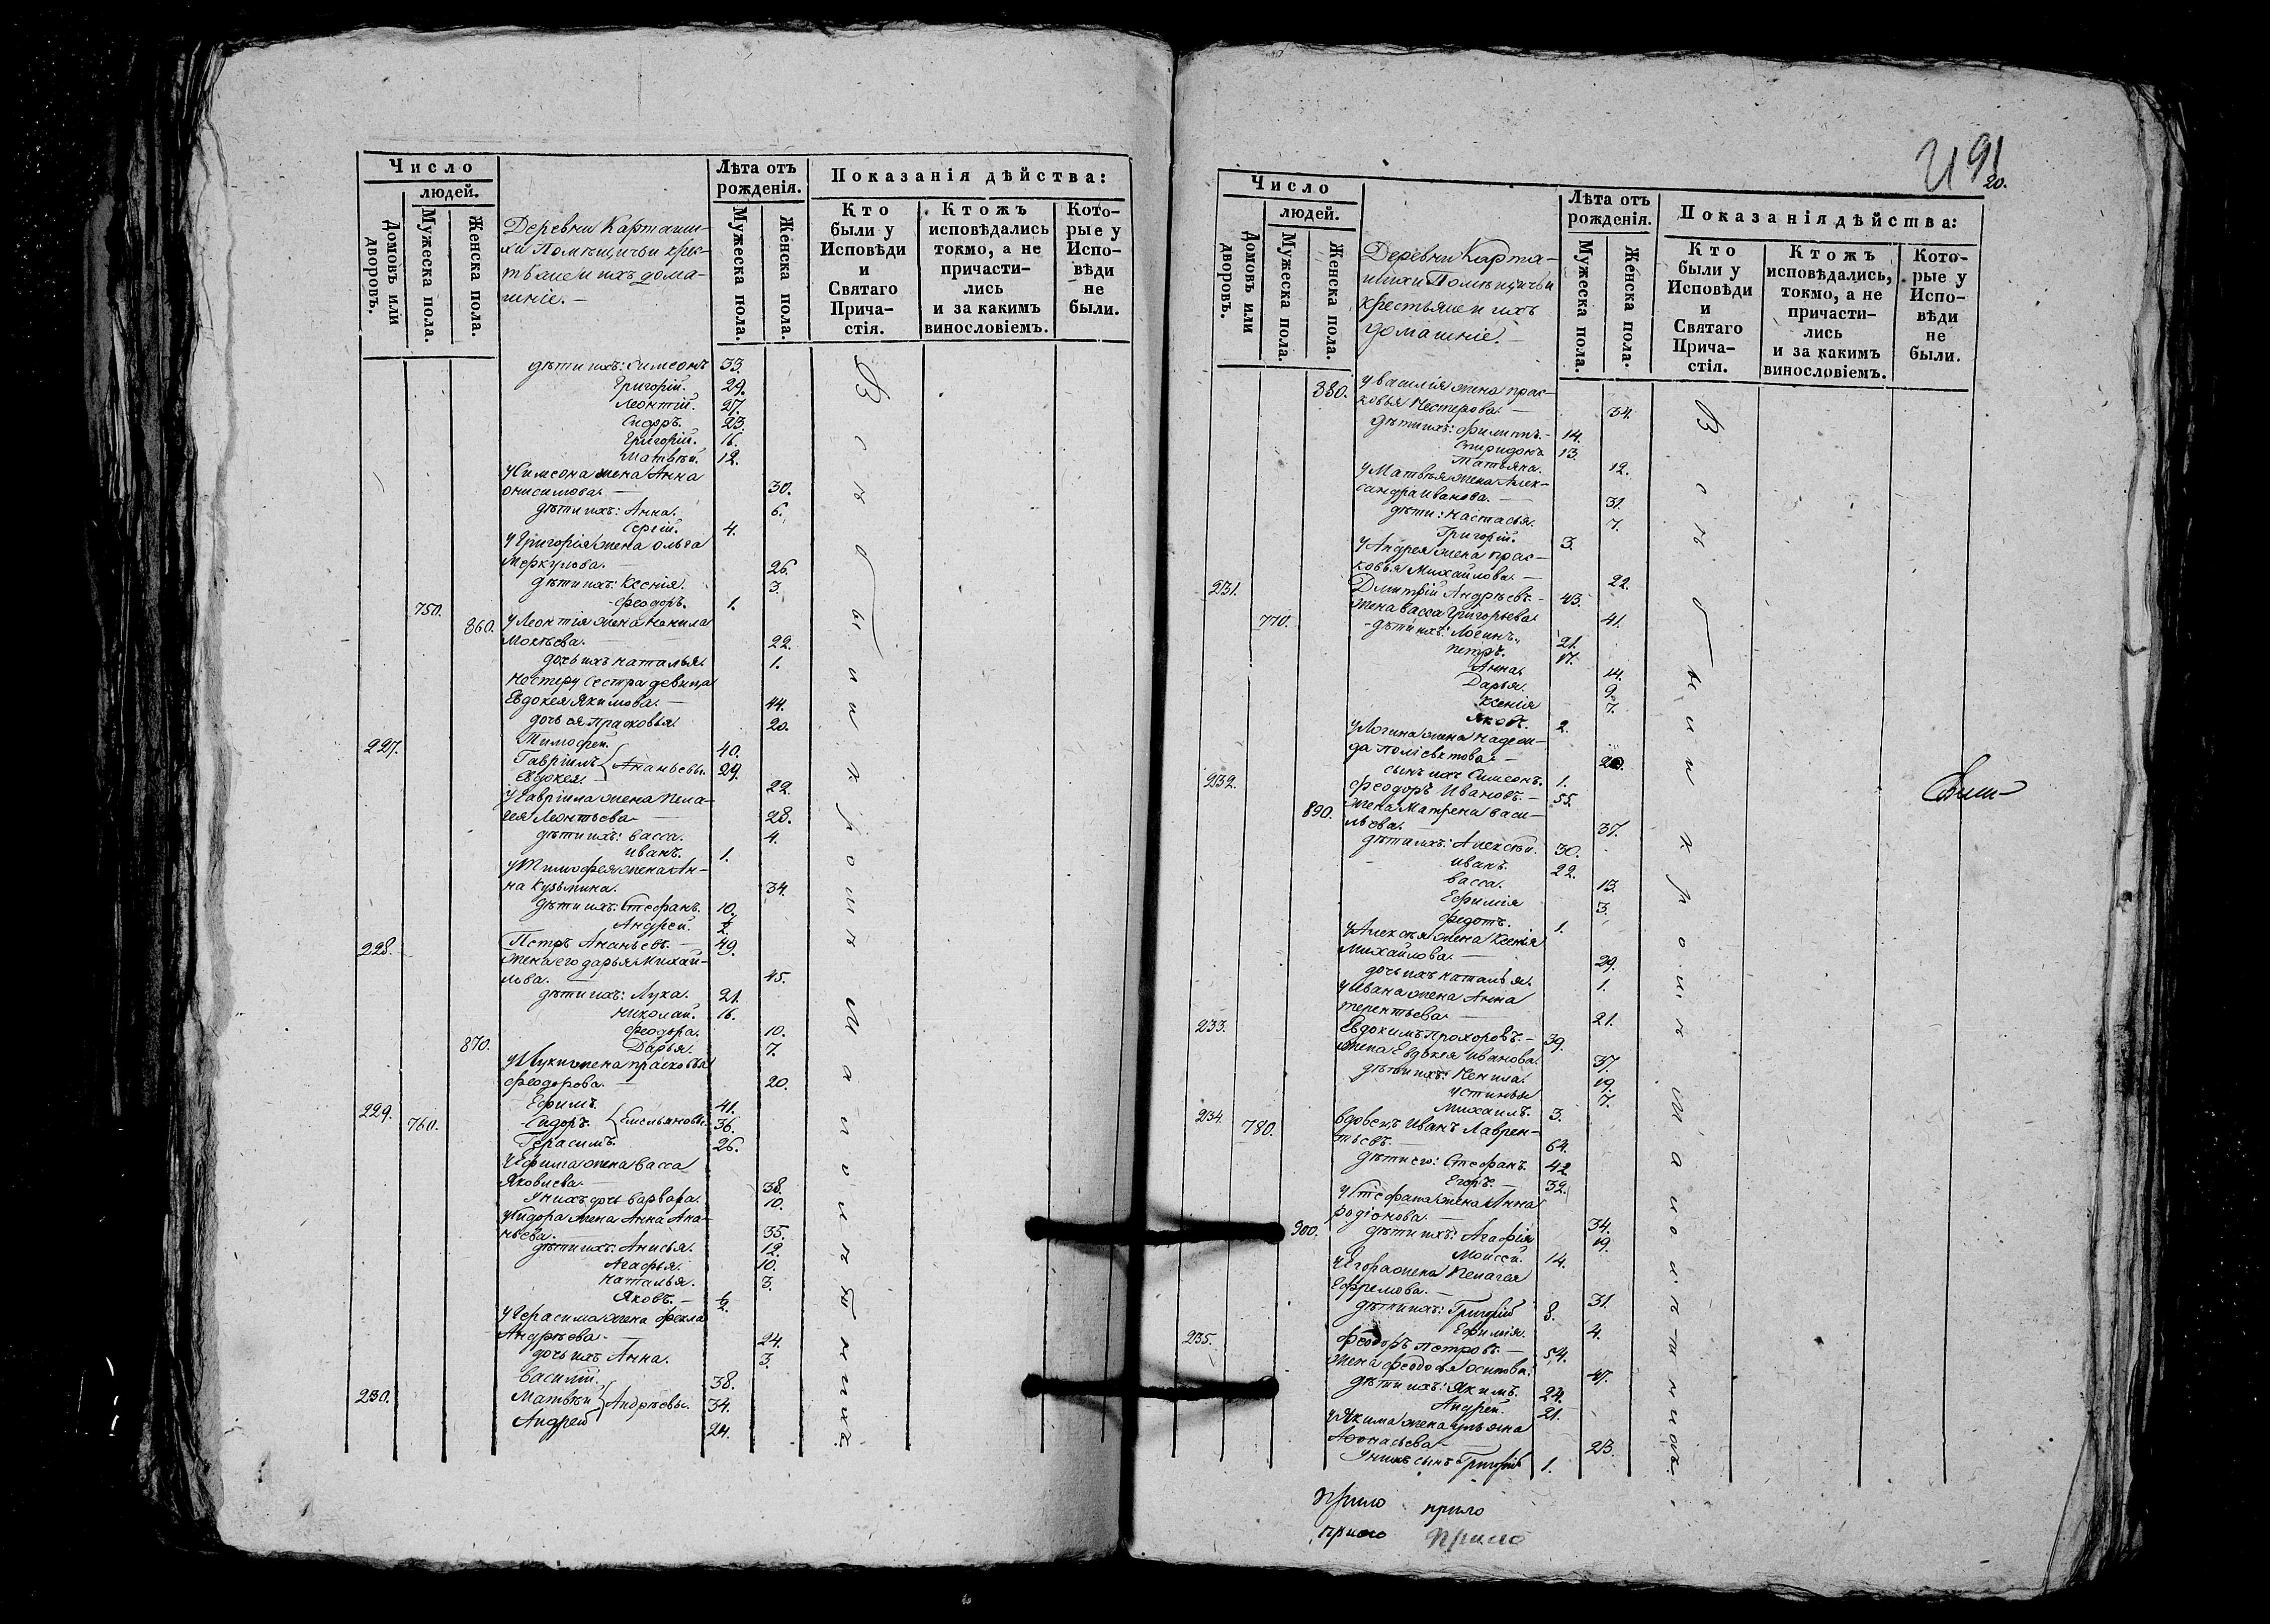 Число
людей.
Домовъ или дворовъ.
Мужеска пола.
Женска пола.
Деревни Карташи-
хи Помѣщичьи крес-
тьяне и ихъ дома-
шніе. —
Лѣта отъ
рожденія.
Мужеска пола.
Женска пола.
Показанія дѣйства:
Кто
были у
Исповѣди
и
Святаго
Прича-
стія.
Ктожъ
исповѣдались
токмо, а не
причасти-
лись
и за какимъ
винословіемъ.
Кото-
рые у
Испо-
вѣди
не
были.
дѣти ихъ: Симеонъ 33.
Григорій. 29.
Леонтій. 27.
Сидоръ. 23.
Григорій. 16.
Матвѣй. 12.
у Симеона жена Анна
Онисимова. — 30.
дѣти ихъ: Анна. 6.
Сергій. 4.
у Григорія жена Ольга
Меркулова. — 26.
дѣти ихъ: Ксенія. 3.
750. Феодоръ. 1.
860. у Леонтія жена Ненила
Мокѣева. — 22.
дочь ихъ Наталья. 1.
Нестеру сестра девица
Евдокея Якимова. — 44.
дочь ея Прасковья. 20.
227. Тимофей. 40.
Гавріилъ Ананьевы. 29.
Евдокея 22.
у Гавріила жена Пела-
гея Леонтьева — 28.
дѣти ихъ: Васса. 4.
Иванъ. 1.
у Тимофея жена Ан-
на Кузьмина. 34.
дѣти ихъ: Стефанъ. 10.
Андрей. ½
228. Петръ Ананьевъ. — 49.
жена его Дарья Михай-
лова. — 45.
дѣти ихъ: Лука. 21.
Николай. 16.
Феодора. 10.
870. Дарья. 7.
у Луки жена Прасковья
Феодорова. — 20.
229. Ефимъ. 41.
760. Сидоръ. Емельяновы. 36.
Герасимъ. 26.
У Ефима жена Васса
Яковлева. — 38.
У нихъ дочь Варвара. 10.
у Сидора жена Анна Ана-
ньева. — 35.
дѣти ихъ: Анисья. 12.
Агафья. 10.
Наталья. 3.
Яковъ. — ½
у Герасима жена Фекла
Андрѣева. — 24.
дочь ихъ Анна. 3.
Василій. 38.
230. Матвѣй Андрѣевы. 34.
Андрей 24.
91
20.
Число
людей.
Домовъ или дворовъ.
Мужеска пола.
Женска пола.
Деревни Карта-
шихи Помѣщичьи
крестьяне и ихъ
домашніе. —
Лѣта отъ
рожденія.
Мужеска пола.
Женска пола.
Показанія дѣйства:
Кто
были у
Исповѣди
и
Святаго
Прича-
стія.
Ктожъ
исповѣдались,
токмо, а не
причасти-
лись
и за какимъ
винословіемъ.
Кото-
рые у
Испо-
вѣди
не
были.
880. у Василія жена Прас-
ковья Нестерова. — 34.
дѣти ихъ: Филиппъ. — 14.
Спиридонъ 13.
Татьяна. 12.
у Матвѣя жена Алек-
сандра Иванова. — 31.
дѣти: Настасья. 7.
Григорій. 3.
у Андрея жена Прас-
ковья Михайлова. — 22.
231. Дмитрій Андрѣевъ. — 43.
жена Васса Григорьева. 41.
770. дѣти ихъ: Логинъ. 21.
Петръ. 17.
Анна. 14.
Дарья. 9.
Ксенія 7.
Яковъ. 2.
у Логина жена Надеж-
да Поліевктова. — 20.
сынъ ихъ Симеонъ. 1.
232. Феодоръ Ивановъ. — 55.
890. жена Матрена Васи-
льева. — 37.
дѣти ихъ: Алексѣй. 30.
Иванъ. 22.
Васса. 13.
Ефимія 3.
Федотъ. 1.
у Алексѣя жена Ксенія
Михайлова. — 29.
дочь ихъ Наталья. 1.
у Ивана жена Анна
Терентьева. — 21.
233. Евдокимъ Прохоровъ. — 39.
жена Евдокея Иванова. 37.
дѣти ихъ: Ненила. 19.
Устинья 7.
Михаилъ. 3.
234. 780. вдовецъ Иванъ Лаврен-
тьевъ. — 64.
дѣти его: Стефанъ. 42.
Егоръ. — 32.
у Стефана жена Анна
Родіонова. — 34.
900. дѣти ихъ: Агафія 19.
Мойсей. 14.
у Егора жена Пелагея
Ефремова. — 31.
дѣти ихъ: Григорій 8.
Ефимія. 4.
235. Феодоръ Петровъ. — 54.
жена Феодосья Осипова. 47.
дѣти ихъ: Якимъ. 24.
Андрей. 21.
у Якима жена Ульяна
Афонасьева — 23.
У нихъ сынъ Григорій 1.
прило прило
прило прило